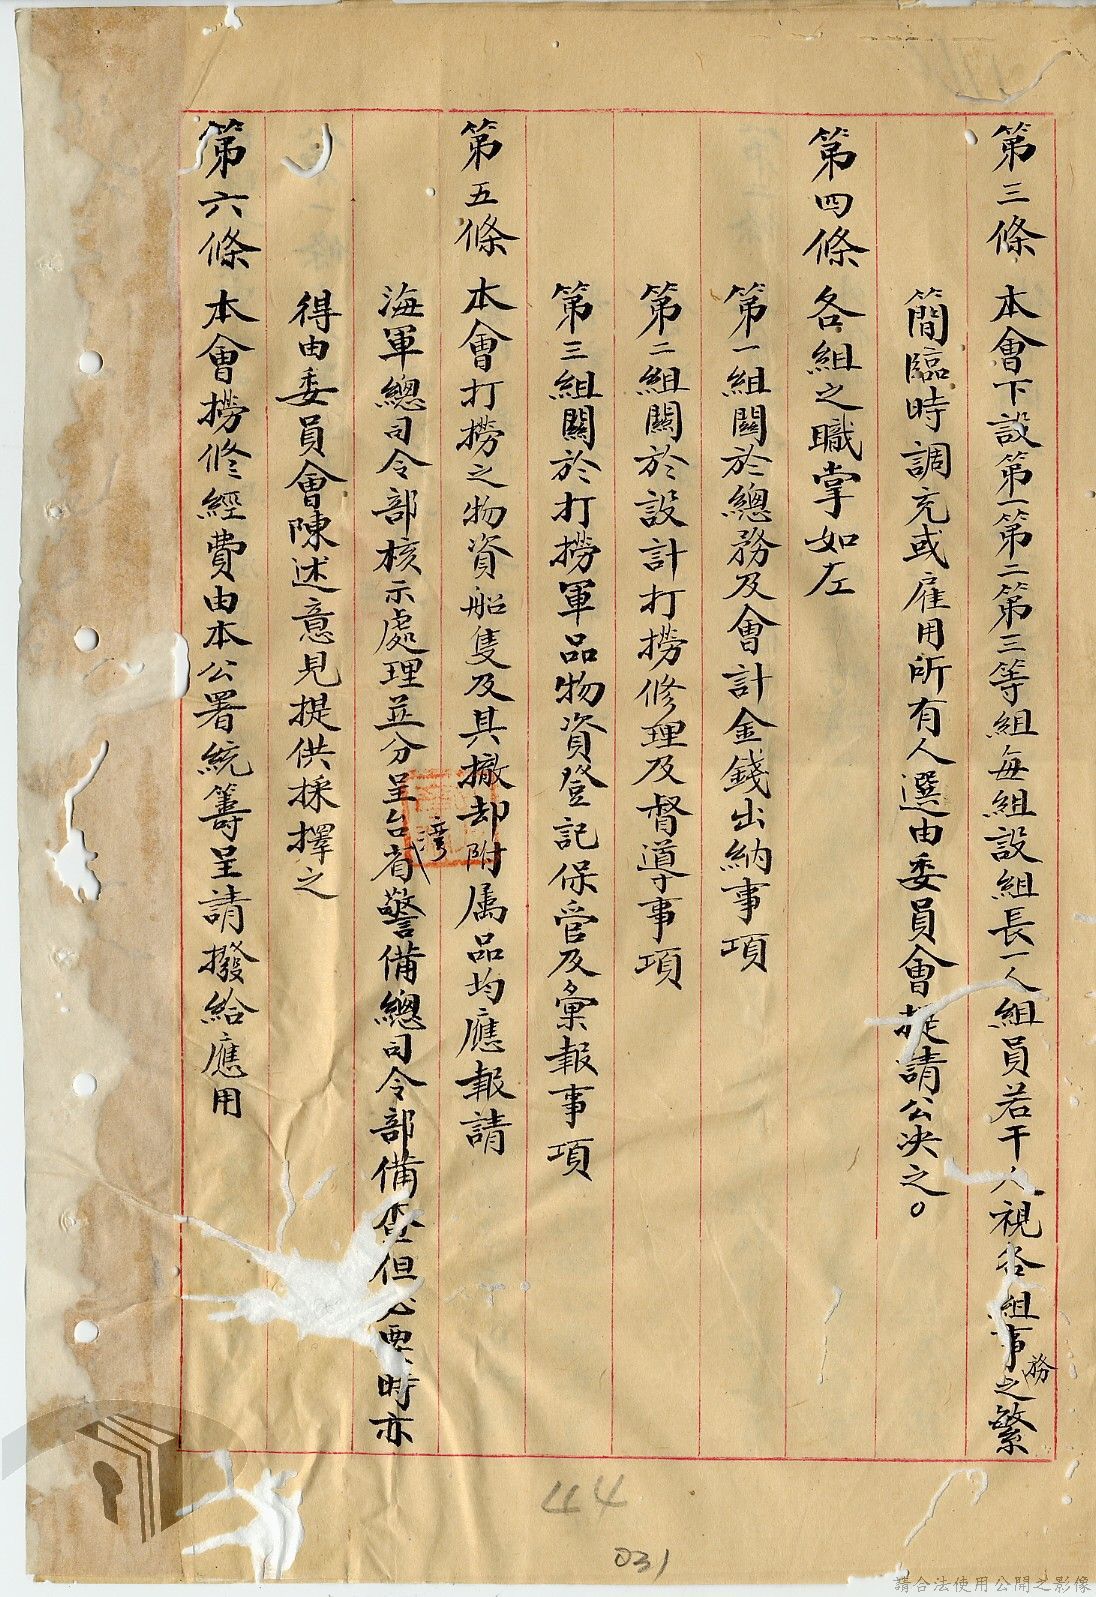 第三條 本會下設第一第二第三等組每組設組長一人組員若干人視各組事務之繁
簡臨時調充或雇用所有人選由委員會提請公决之。
第四條 各組之職掌如左
第一組關於總務及會計金錢出納事項
第二組關於設計打撈修理及督導事項
第三組關於打撈軍品物資登記保管及彙報事項
第五條 本會打撈之物資船隻及具撤却附属品均應報請
海軍總司令部核示處理並分呈台灣省警備總司令部備查但必要時亦
得由委員會陳述意見提供採擇之
第六條 本會撈修經費由本公署統籌呈請撥給應用
44
031
請合法使用公開之影像